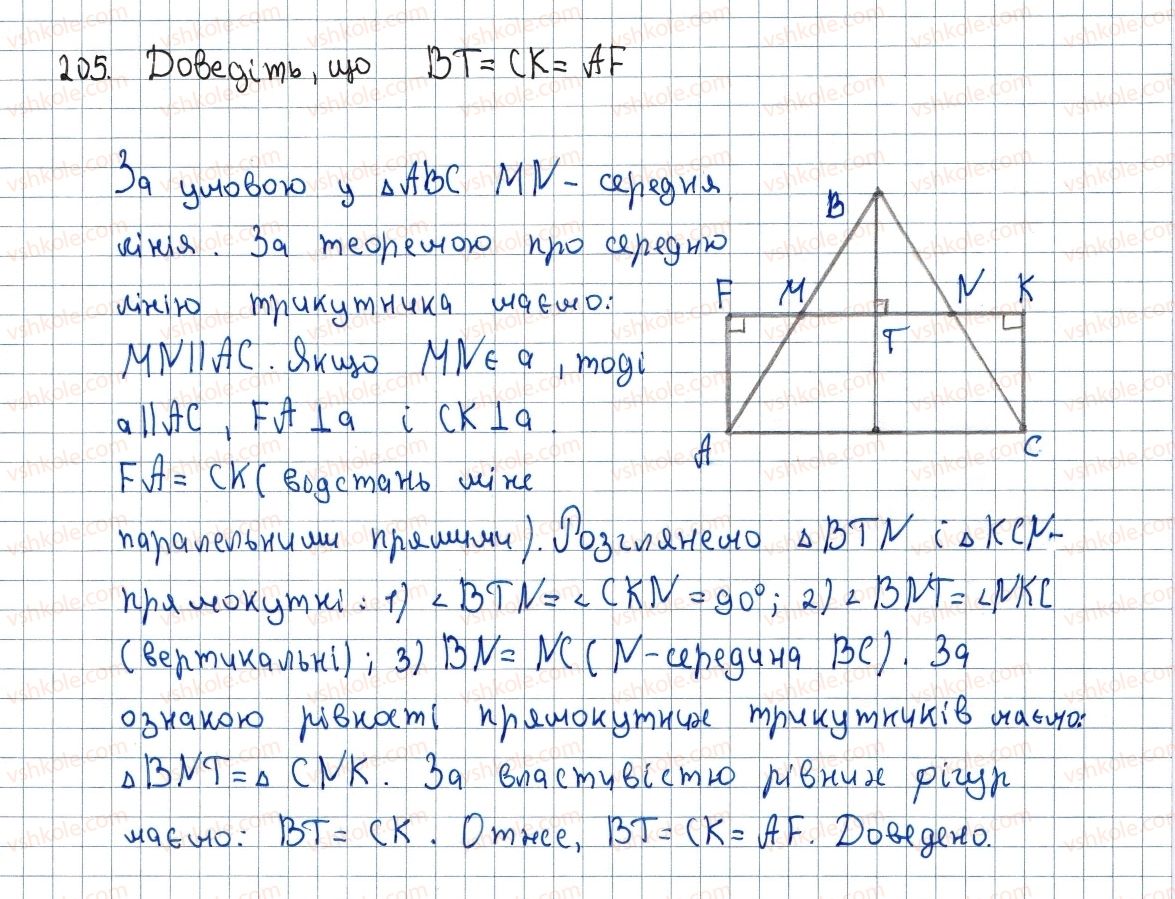 205. Доведіть, що BT = CK = AF
За умовою у △ABC MN - середня
лінія. За теоремою про середню
лінію трикутника маємо:
MN||AC. Якщо MN є a, тоді
a||AC, FA⊥a і CK⊥a.
FA = CK (водстань між
паралельними прямими). Розглянемо △BTN і △KCN -
прямокутні: 1) ∠BTN = ∠CKN = 90°; 2) ∠BNT = ∠NKC
(вертикальні); 3) BN = NC (N - середина BC). За
ознакою рівності прямокутних трикутників маємо:
△BNT = △CNK. За властивістю рівних фігур
маємо: BT = CK. Отже, BT = CK = AF. Доведено.
B
F M N K
T
A C